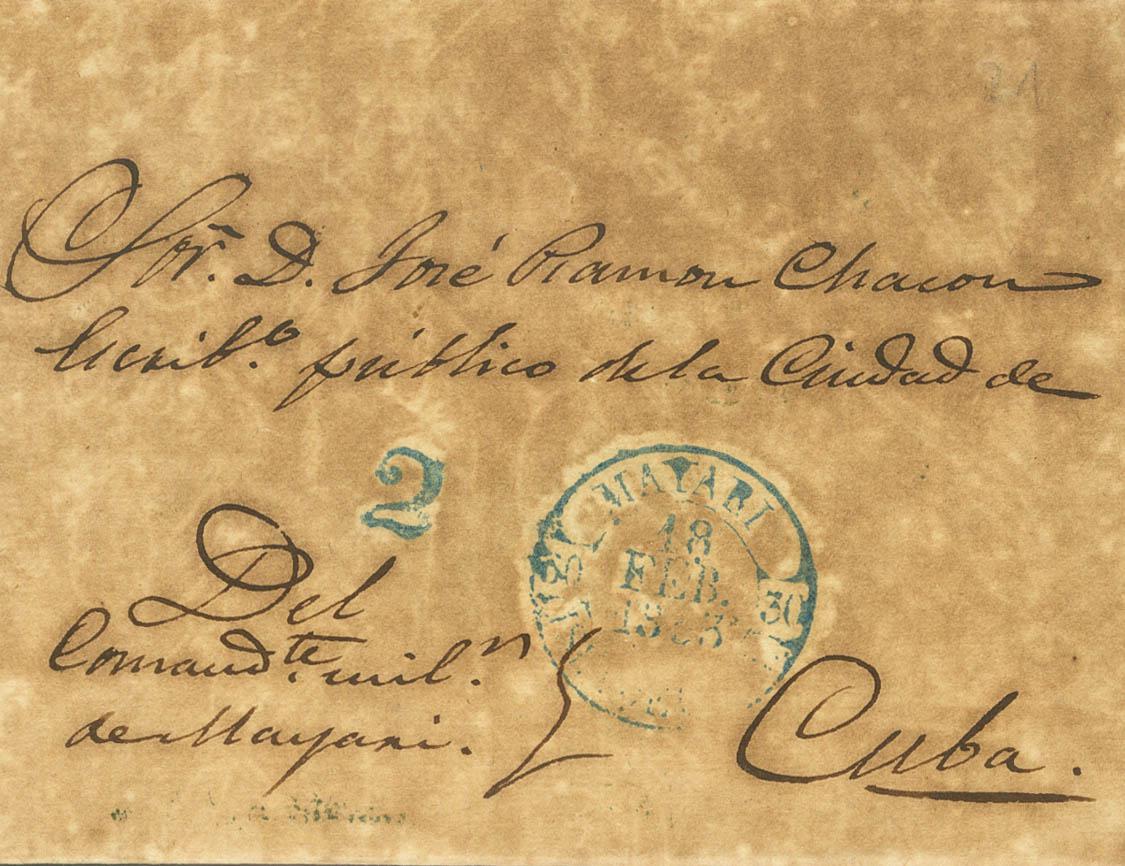 Sor. D. José Ramon Chacon
Escrib.o público de la Ciudad de
2
MAYARI
18
FEB.
30
Del
Comand.te mil.n
de Mayari.
Cuba.